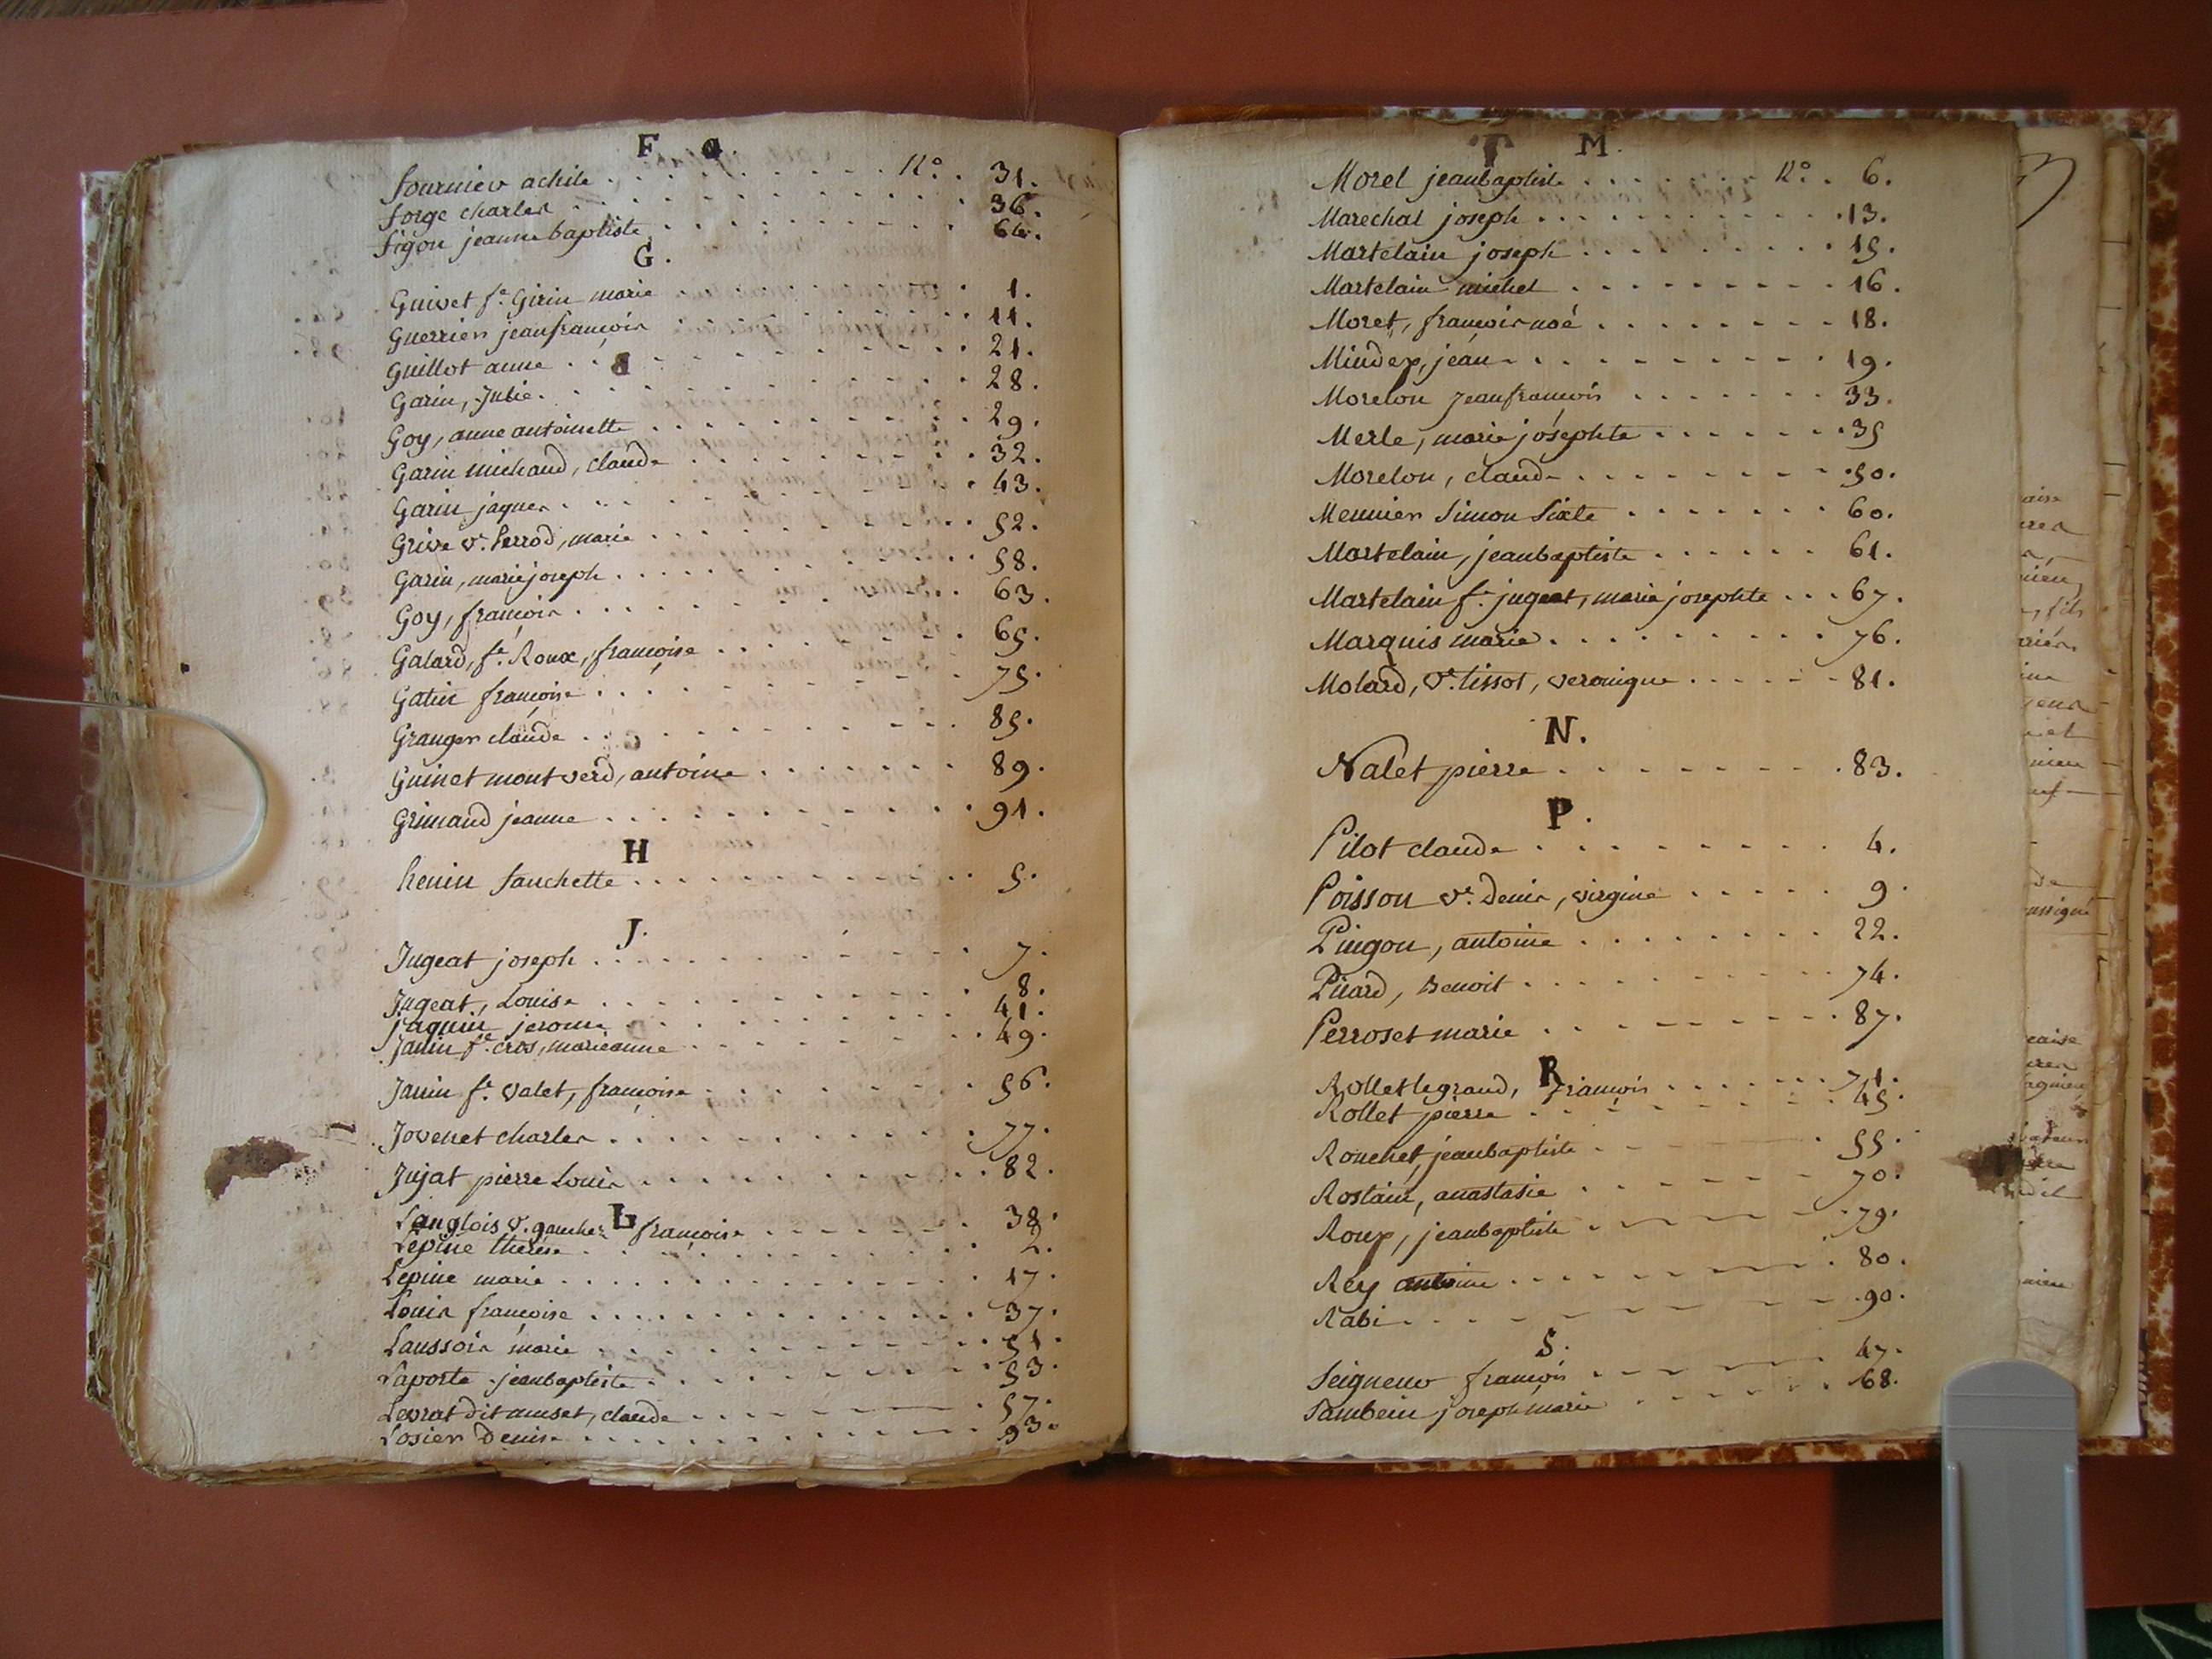 F G.
fournier achile . . . . . . . . N.º . 31.
forge charles . . . . . . . . . . 36.
figon jeanne baptiste . . . . . . . . 66.
G.
Guivet fe. Girin marie . . . . . . . . 1.
Guerrier jeanfrançois . . . . . . . . 11.
Guillot anne . . . . . . . . 21.
Garin, Julie . . . . . . . . 28.
Goy, anne antoinette . . . . . . . . 29.
Garin michaud, claude . . . . . . . . 32.
Garin jaques . . . . . . . . 43.
Grive ve. perrod, marie . . . . . . . . 52.
Garin, marie joseph . . . . . . . . 58.
Goy, françois . . . . . . . . 63.
Galard, fe. Roux, françoise . . . . . . . . 65.
Gatin françoise . . . . . . . . 75.
Granger claude . . . . . . . . 85.
Guinet montverd, antoine . . . . . . . 89.
Grimaud jeanne . . . . . . . . 91.
H
henin fanchette . . . . . . . . 5.
J.
Jugeat joseph . . . . . . . . 7.
Jugeat, Louise . . . . . . . . 8.
jaquin jerome . . . . . . . . 41.
Janin fe. cros, marieanne . . . . . . . . 49.
Janin fe. valet, françoise . . . . . . . . 56.
Jovenet charles . . . . . . . . 77.
Jujat pierre Louis . . . . . . . . 82.
L
Langlois v. gaucher françoise . . . . . . 38.
Lépine therese . . . . . . . . 2.
Lepine marie . . . . . . . . 17.
Louis françoise . . . . . . . . 37.
Laussois marie . . . . . . . . 51.
Laporte jeanbaptiste . . . . . . . . 53.
Levrat dit amset, claude . . . . . 57.
Losier Denise . . . . . . . . 93.
M.
Morel jeanbaptiste . . . . . . N.º . 6.
Marechal joseph . . . . . . . . 13.
Martelain joseph . . . . . . . . 15.
Martelain michel . . . . . . . . 16.
Moret, françois noé . . . . . . . . 18.
Mindex, jean . . . . . . . . 19.
Morelon jeanfrançois . . . . . . . 33.
Merle, marie josephte . . . . . . . 35
Morelon, claude . . . . . . . . 50.
Meunier Simon Sixte . . . . . . . 60.
Martelain, jeanbaptiste . . . . . . 61.
Martelain fe. jugeat, marie josephte . . . 67.
Marquis marie . . . . . . . . 76.
Molard, ve. tissot, veronique . . . . . . 81.
N.
Nalet pierre . . . . . . . . 83.
P.
Pilot claude . . . . . . . . 4.
Poisson ve. Denis, virgine . . . . . 9.
Pingon, antoine . . . . . . . . 22.
Picard, Benoit . . . . . . . . 74.
Perroset marie . . . . . . . . 87.
R
Rollet legrand, françois . . . . . . 71.
Rollet pierre . . . . . . . . 45.
Rouchet, jeanbaptiste . . . . . 55.
Rostain, anastasie . . . . . . 70.
Roux, jeanbaptiste . . . . . . 79.
Rey antoine . . . . . . . . 80.
Rabi . . . . . . . . 90.
S.
Seigneur françois . . . . . . 47.
Sambein joseph marie . . . . . . 68.